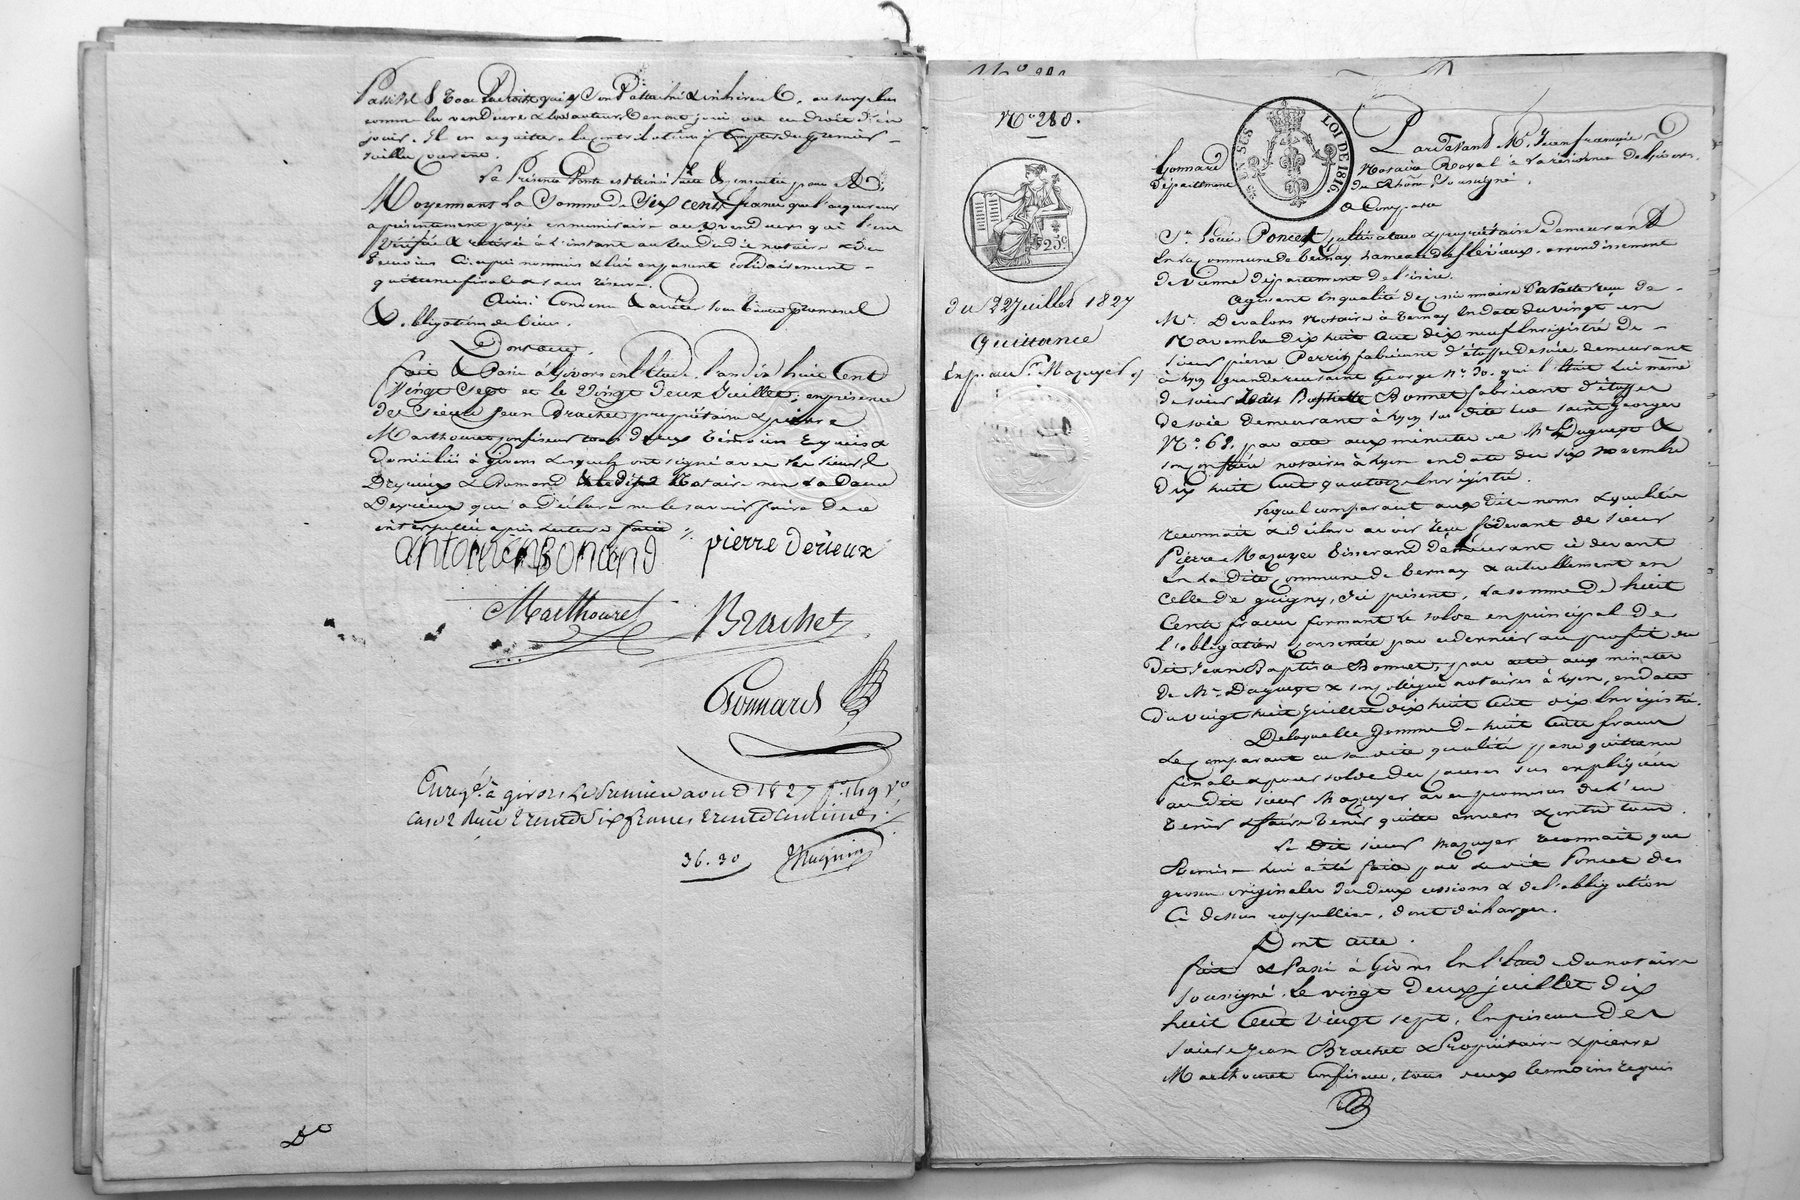 Passive & tous droits qui y sont attachés & inhérents, au surplus
comme les vendeurs & leurs auteurs en ont joui ou eu droit d'en
jouir. Il en acquittera les contributions à compter du premier
juillet courant.
La présente vente est ainsi faite & consentie pour &
Moyennant la somme de Six cents francs que l'acquéreur
a présentement payée en numéraire aux vendeurs qui l'ont
vérifiée & retirée à l'instant au vu du dit notaire & des
témoins ci-après nommés & lui en passent solidairement
quittance finale & sans réserve.
Ainsi Convenu & arrêté sous toutes promesses
& obligations de biens.
Dont acte.
fait & Passé à Givors en l'Etude, l'an dix huit Cent
Vingt Sept et le Vingt Deux Juillet, en présence
de Sieurs Jean Brachet propriétaire & pierre
Marthouret confiseur tous deux témoins requis &
domiciliés à Givors lesquels ont signé avec les sieurs
Derieux & Bonnand & le dit Notaire non la Dame
Derieux qui a déclaré ne le savoir faire de ce
interpellée après lecture faite
antoine Bonand pierre Derieux
Marthouret Brachet
Gonnard
Enregé. à givors le premier aout 1827 fo. 149 Vo.
case 2 Reçu trente six francs trente centimes
36.30
No. 280.
EN SUS LOI DE 1816.
25 c
du 22 Juillet 1827
Quittance
Pardevant Me. Jean françois
Gonnard Notaire Royal à la résidence de Givors,
département du Rhône, Soussigné,
a Comparu
Sr. Louis Poncet, cultivateur & propriétaire demeurant
en la commune de Ternay hameau de flévieux, arrondissement
de Vienne département de l'isère.
Agissant en qualité de cessionnaire par acte reçu de
Me. Devalors Notaire à Ternay en date du vingt un
Novembre dix huit cent dix neuf Enregistré de
sieur pierre Perrin fabricant d'étoffes de soie, demeurant
à Lyon grande rue saint George no. 30. qui l'était lui même
de sieur Jean Baptiste Bonnet fabricant d'étoffes
de soie demeurant à Lyon sus dite rue saint Georges
No. 62, par acte aux minutes de Me. Duguest &
son confrère notaires à Lyon en date du six novembre
dix huit cent quatorze Enregistré.
Lequel comparant aux dits noms & qualités
reconnait & déclare avoir reçu ci devant de sieur
Pierre Mazuyer Tisserand demeurant ci devant
en la dite commune de Ternay & actuellement en
celle de grigny, ici présent, la somme de huit
Cents francs formant le solde en principal de
l'obligation consentie par ce dernier au profit du
dit Jean Baptiste Bonnet, par acte aux minutes
de Me. Duguest & son collègue notaires à Lyon, en date
du vingt huit juillet dix huit cent dix Enregistré.
De laquelle somme de huit cents francs
le comparant en sa dite qualité passe quittance
finale & pour solde des causes sus expliquées
au dit sieur Mazuyer avec promesse de l'en
tenir & faire tenir quitte envers & contre tous.
Le Dit sieur Mazuyer reconnait que
Remise lui a été faite par le dit Poncet des
grosses originales des deux cessions & de l'obligation
Ci dessus rappellées, dont décharge.
Dont acte.
fait & Passé à Givors En l'Etude du notaire
soussigné. Le vingt Deux juillet dix
huit Cent Vingt sept, En présence De
sieurs Jean Brachet Propriétaire & pierre
Marthouret Confiseur, tous deux temoins requis